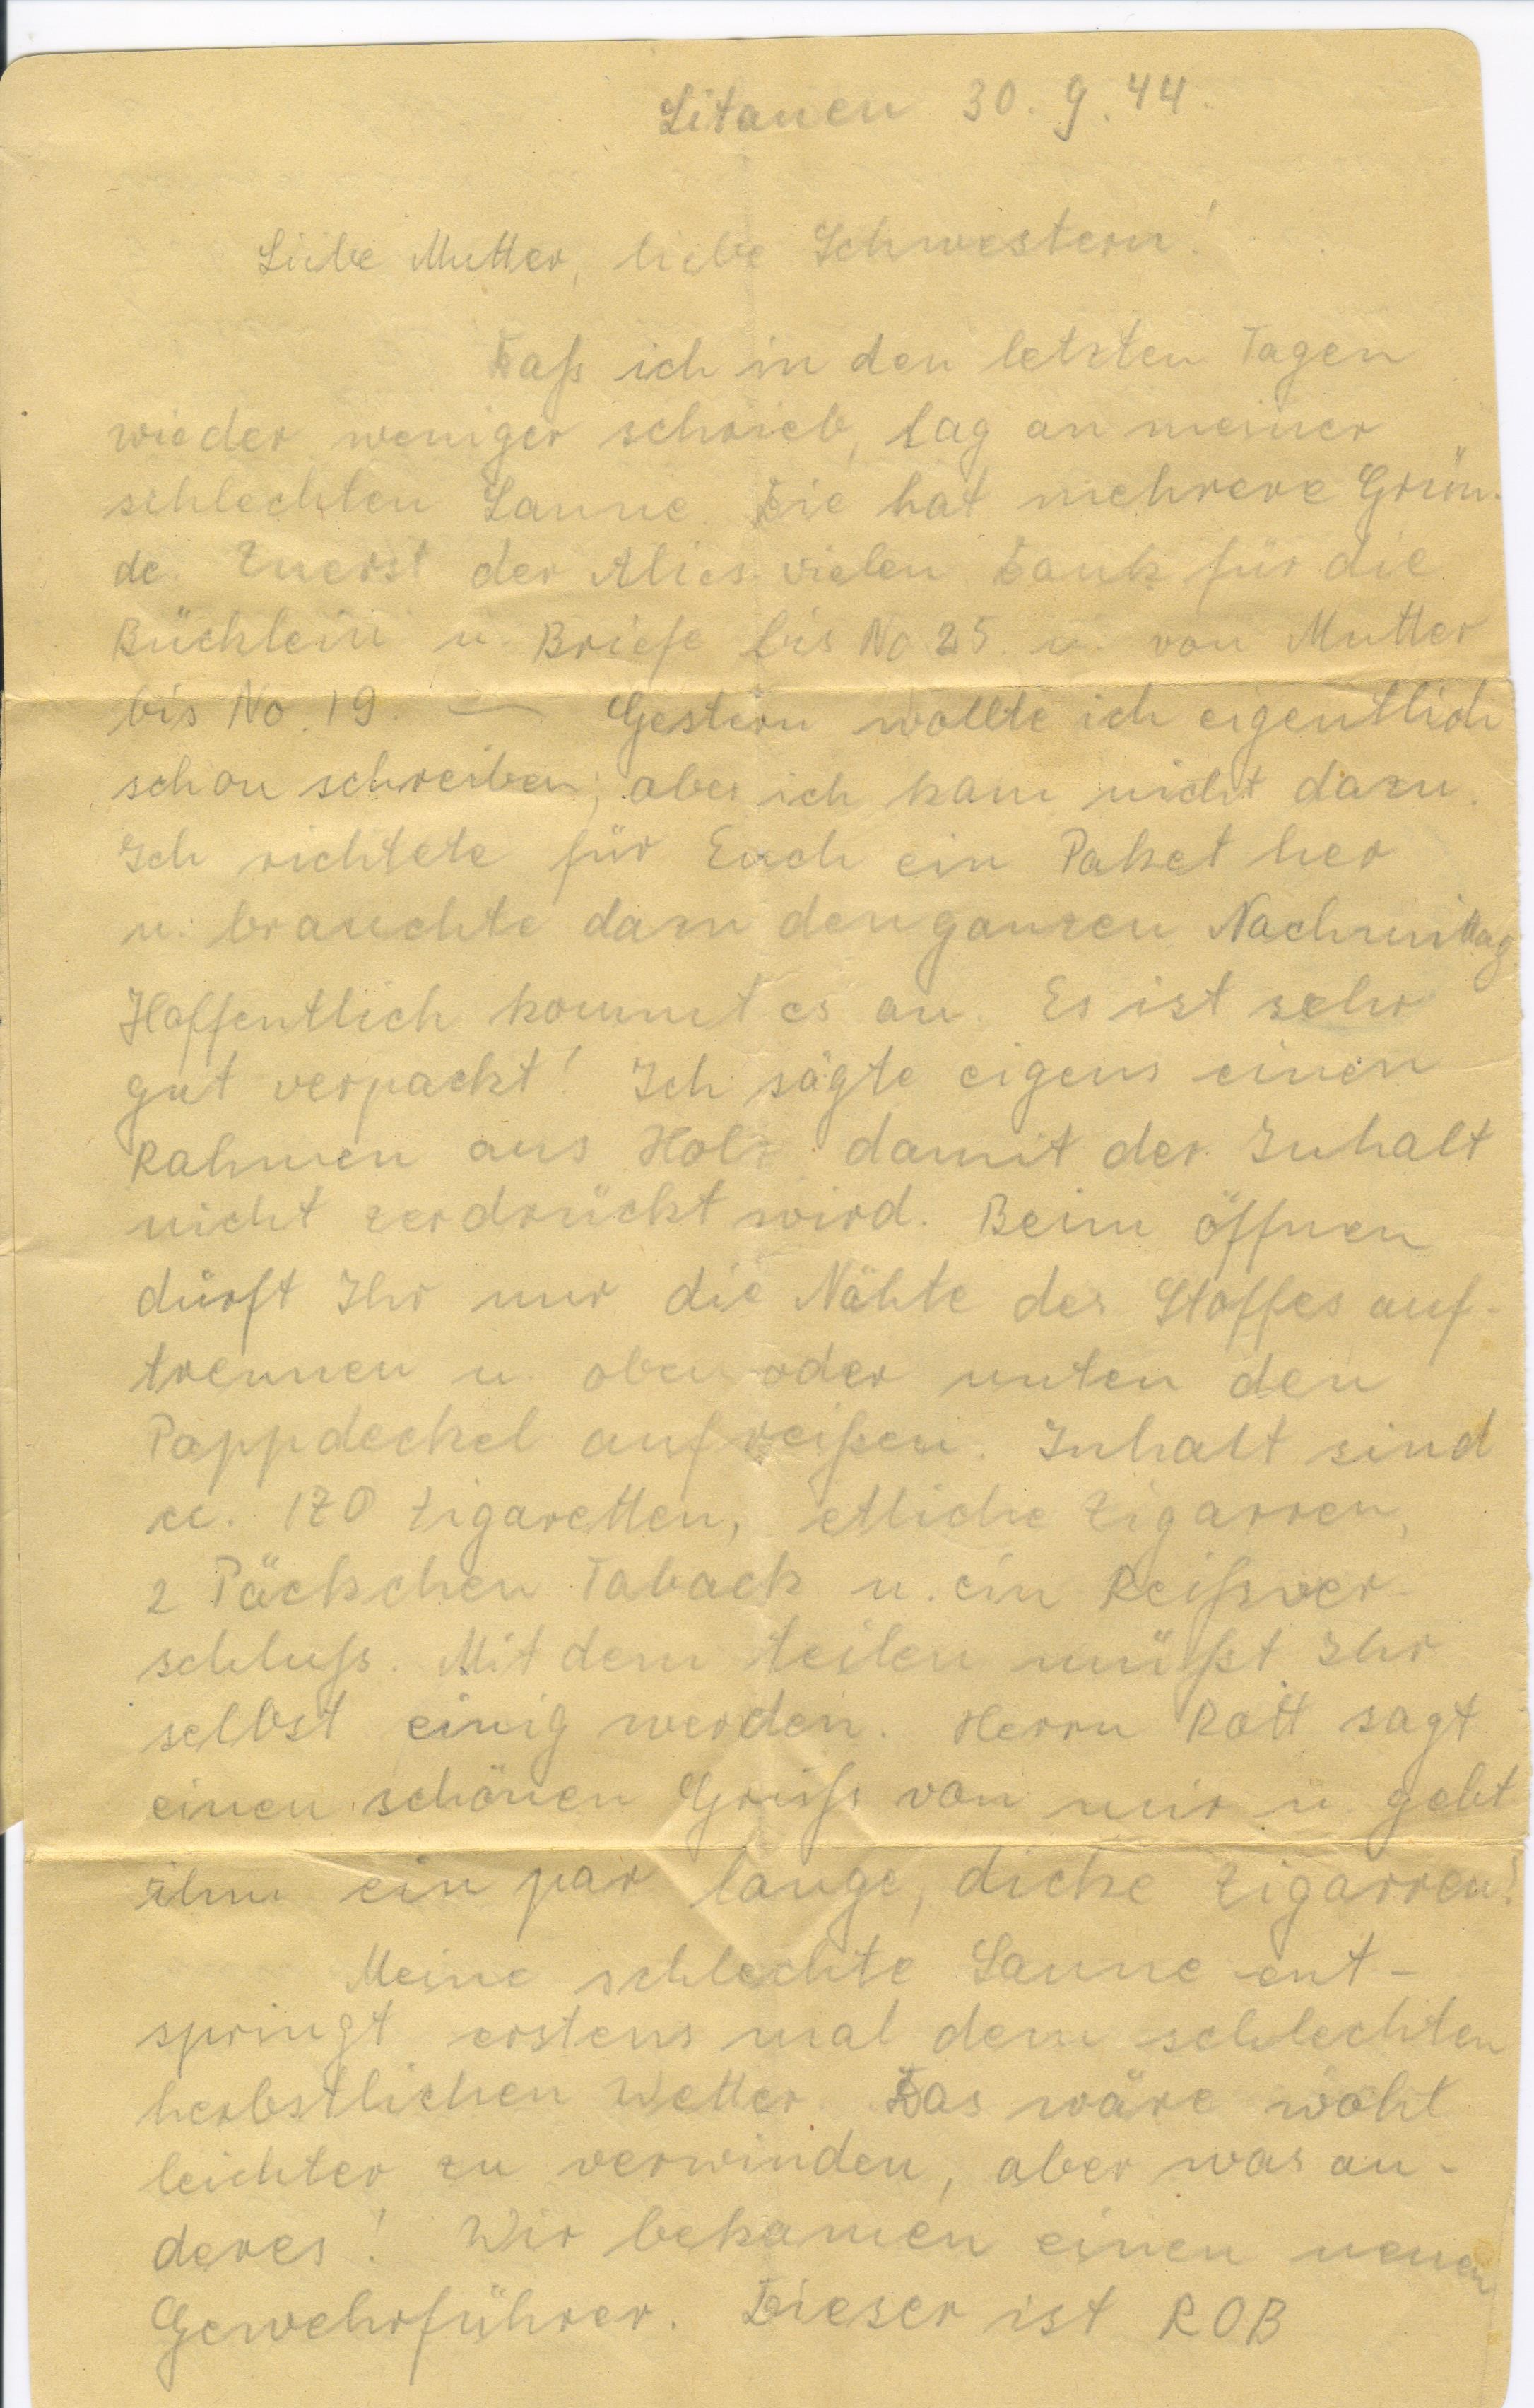 Litauen 30. 9. 44.
Liebe Mutter, liebe Schwestern!
Daß ich in den letzten Tagen
wieder weniger schrieb, lag an meiner
schlechten Laune. Die hat mehrere Grün-
de. Zuerst der Alies vielen Dank für die
Büchlein u. Briefe bis No 25. u. von Mutter
bis No. 19. — Gestern wollte ich eigentlich
schon schreiben, aber ich kam nicht dazu.
Ich richtete für Euch ein Paket her
u. brauchte dazu den ganzen Nachmittag.
Hoffentlich kommt es an. Es ist sehr
gut verpackt! Ich sägte eigens einen
Rahmen aus Holz damit der Inhalt
nicht zerdrückt wird. Beim öffnen
dürft Ihr nur die Nähte des Stoffes auf-
trennen u. oben oder unten den
Pappdeckel aufreißen. Inhalt sind
cc. 170 Zigaretten, etliche Zigarren,
2 Päckchen Taback u. ein Reißver-
schluß. Mit dem teilen müßt Ihr
selbst einig werden. Herrn Rott sagt
einen schönen Gruß von mir u. gebt
ihm ein par lange, dicke Zigarren!
Meine schlechte Laune ent-
springt erstens mal dem schlechten
herbstlichen Wetter. Das wäre wohl
leichter zu verwinden, aber was an-
deres! Wir bekamen einen neuen
Gewehrführer. Dieser ist ROB